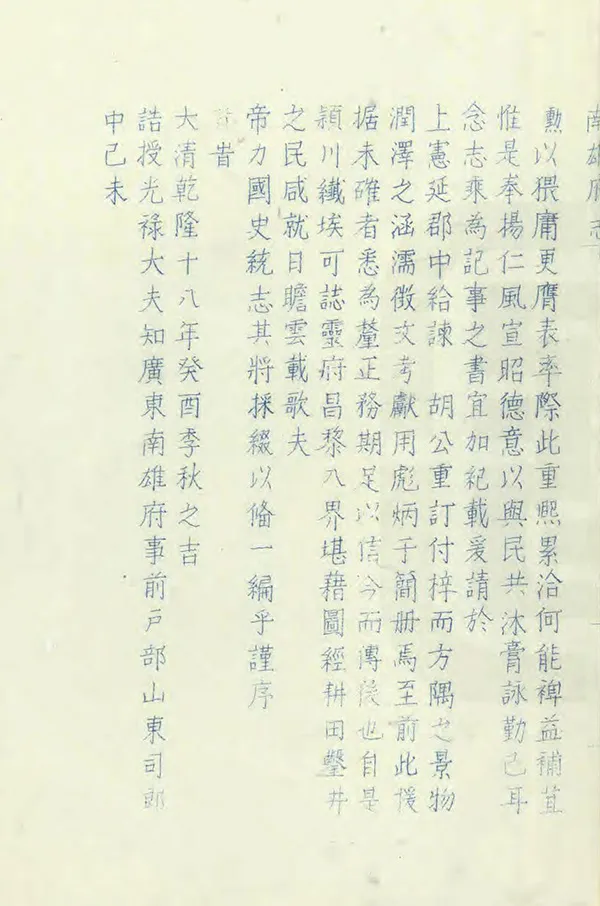 南雄府志
勲以猥庸更膺表率際此重熙累洽何能裨益補苴
惟是奉揚仁風宣昭德意以與民共沐膏詠勤己耳
念志乘為記事之書宜加紀載爰請於
上憲延郡中給諫　胡公重訂付梓而方隅之景物
潤澤之涵濡徴文考獻用彪炳于簡册焉至前此援
据未確者悉為釐正務期足以信今而傳後也自是
穎川纖埃可誌靈府昌黎入界堪藉圖經耕田鑿井
之民咸就日瞻雲載歌夫
帝力國史統志其將採綴以偹一編乎謹序
旹
大清乾隆十八年癸酉季秋之吉
誥授光祿大夫知廣東南雄府事前戸部山東司郎
中己未